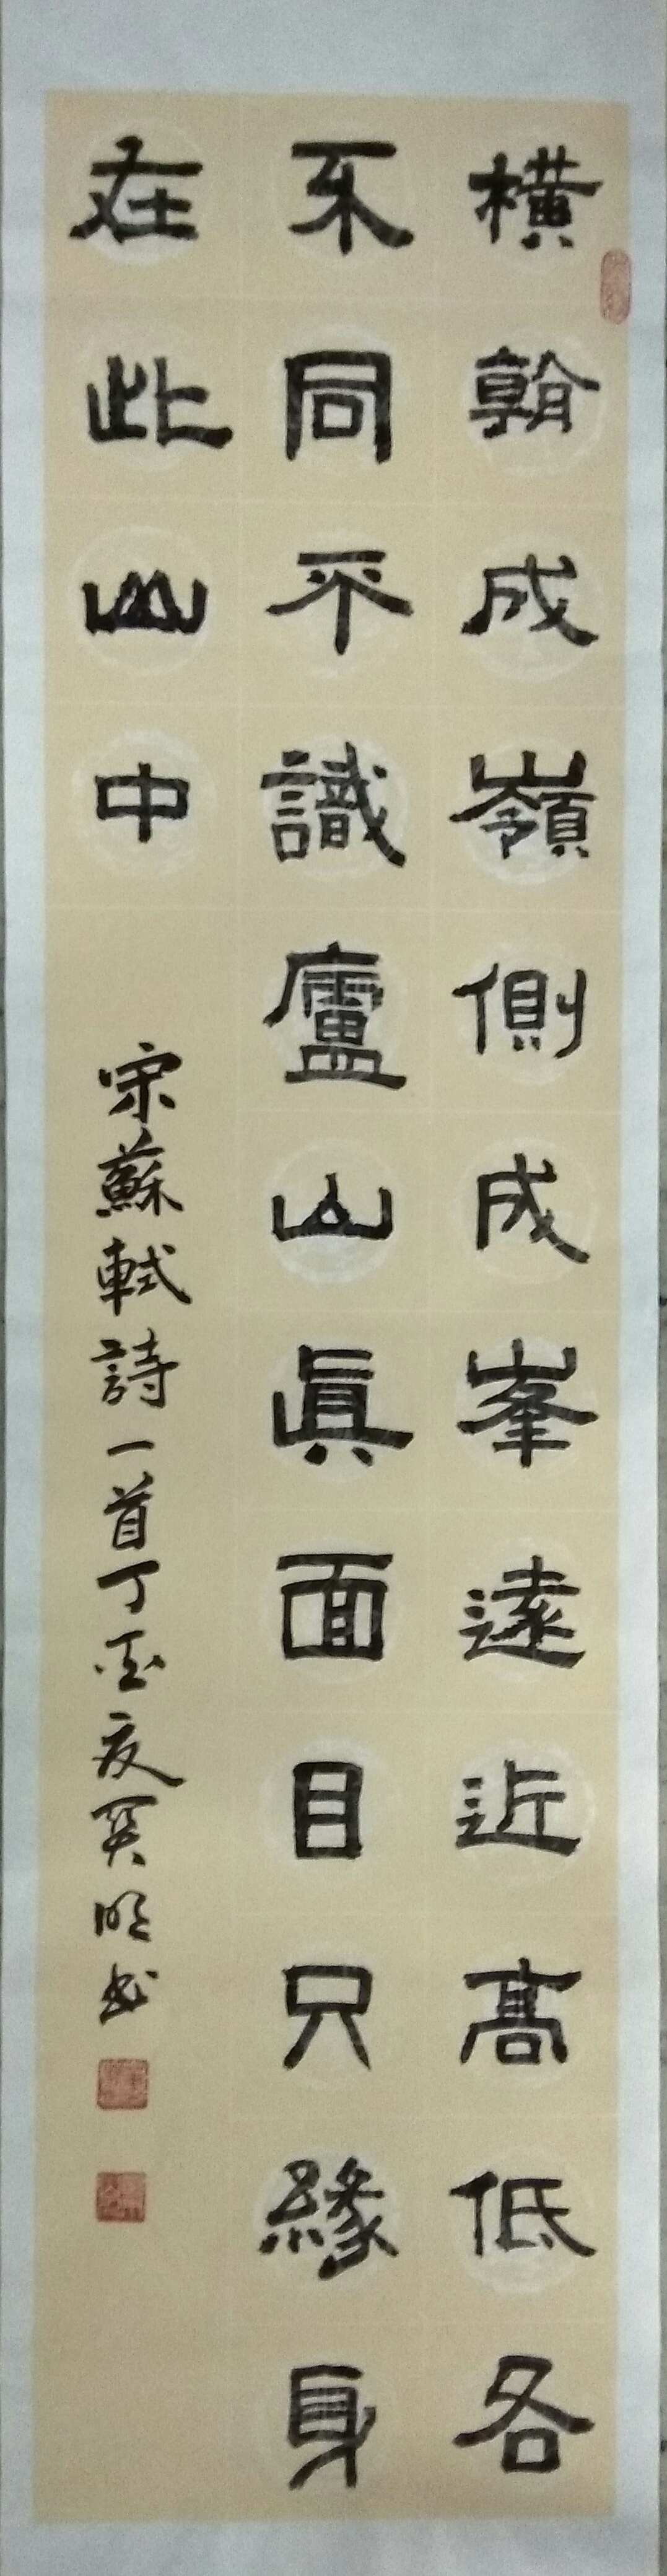 橫看成嶺側成峯遠近高低各
不同不識廬山眞面目只緣身
在此山中
宋蘇軾詩一首丁酉夏明书